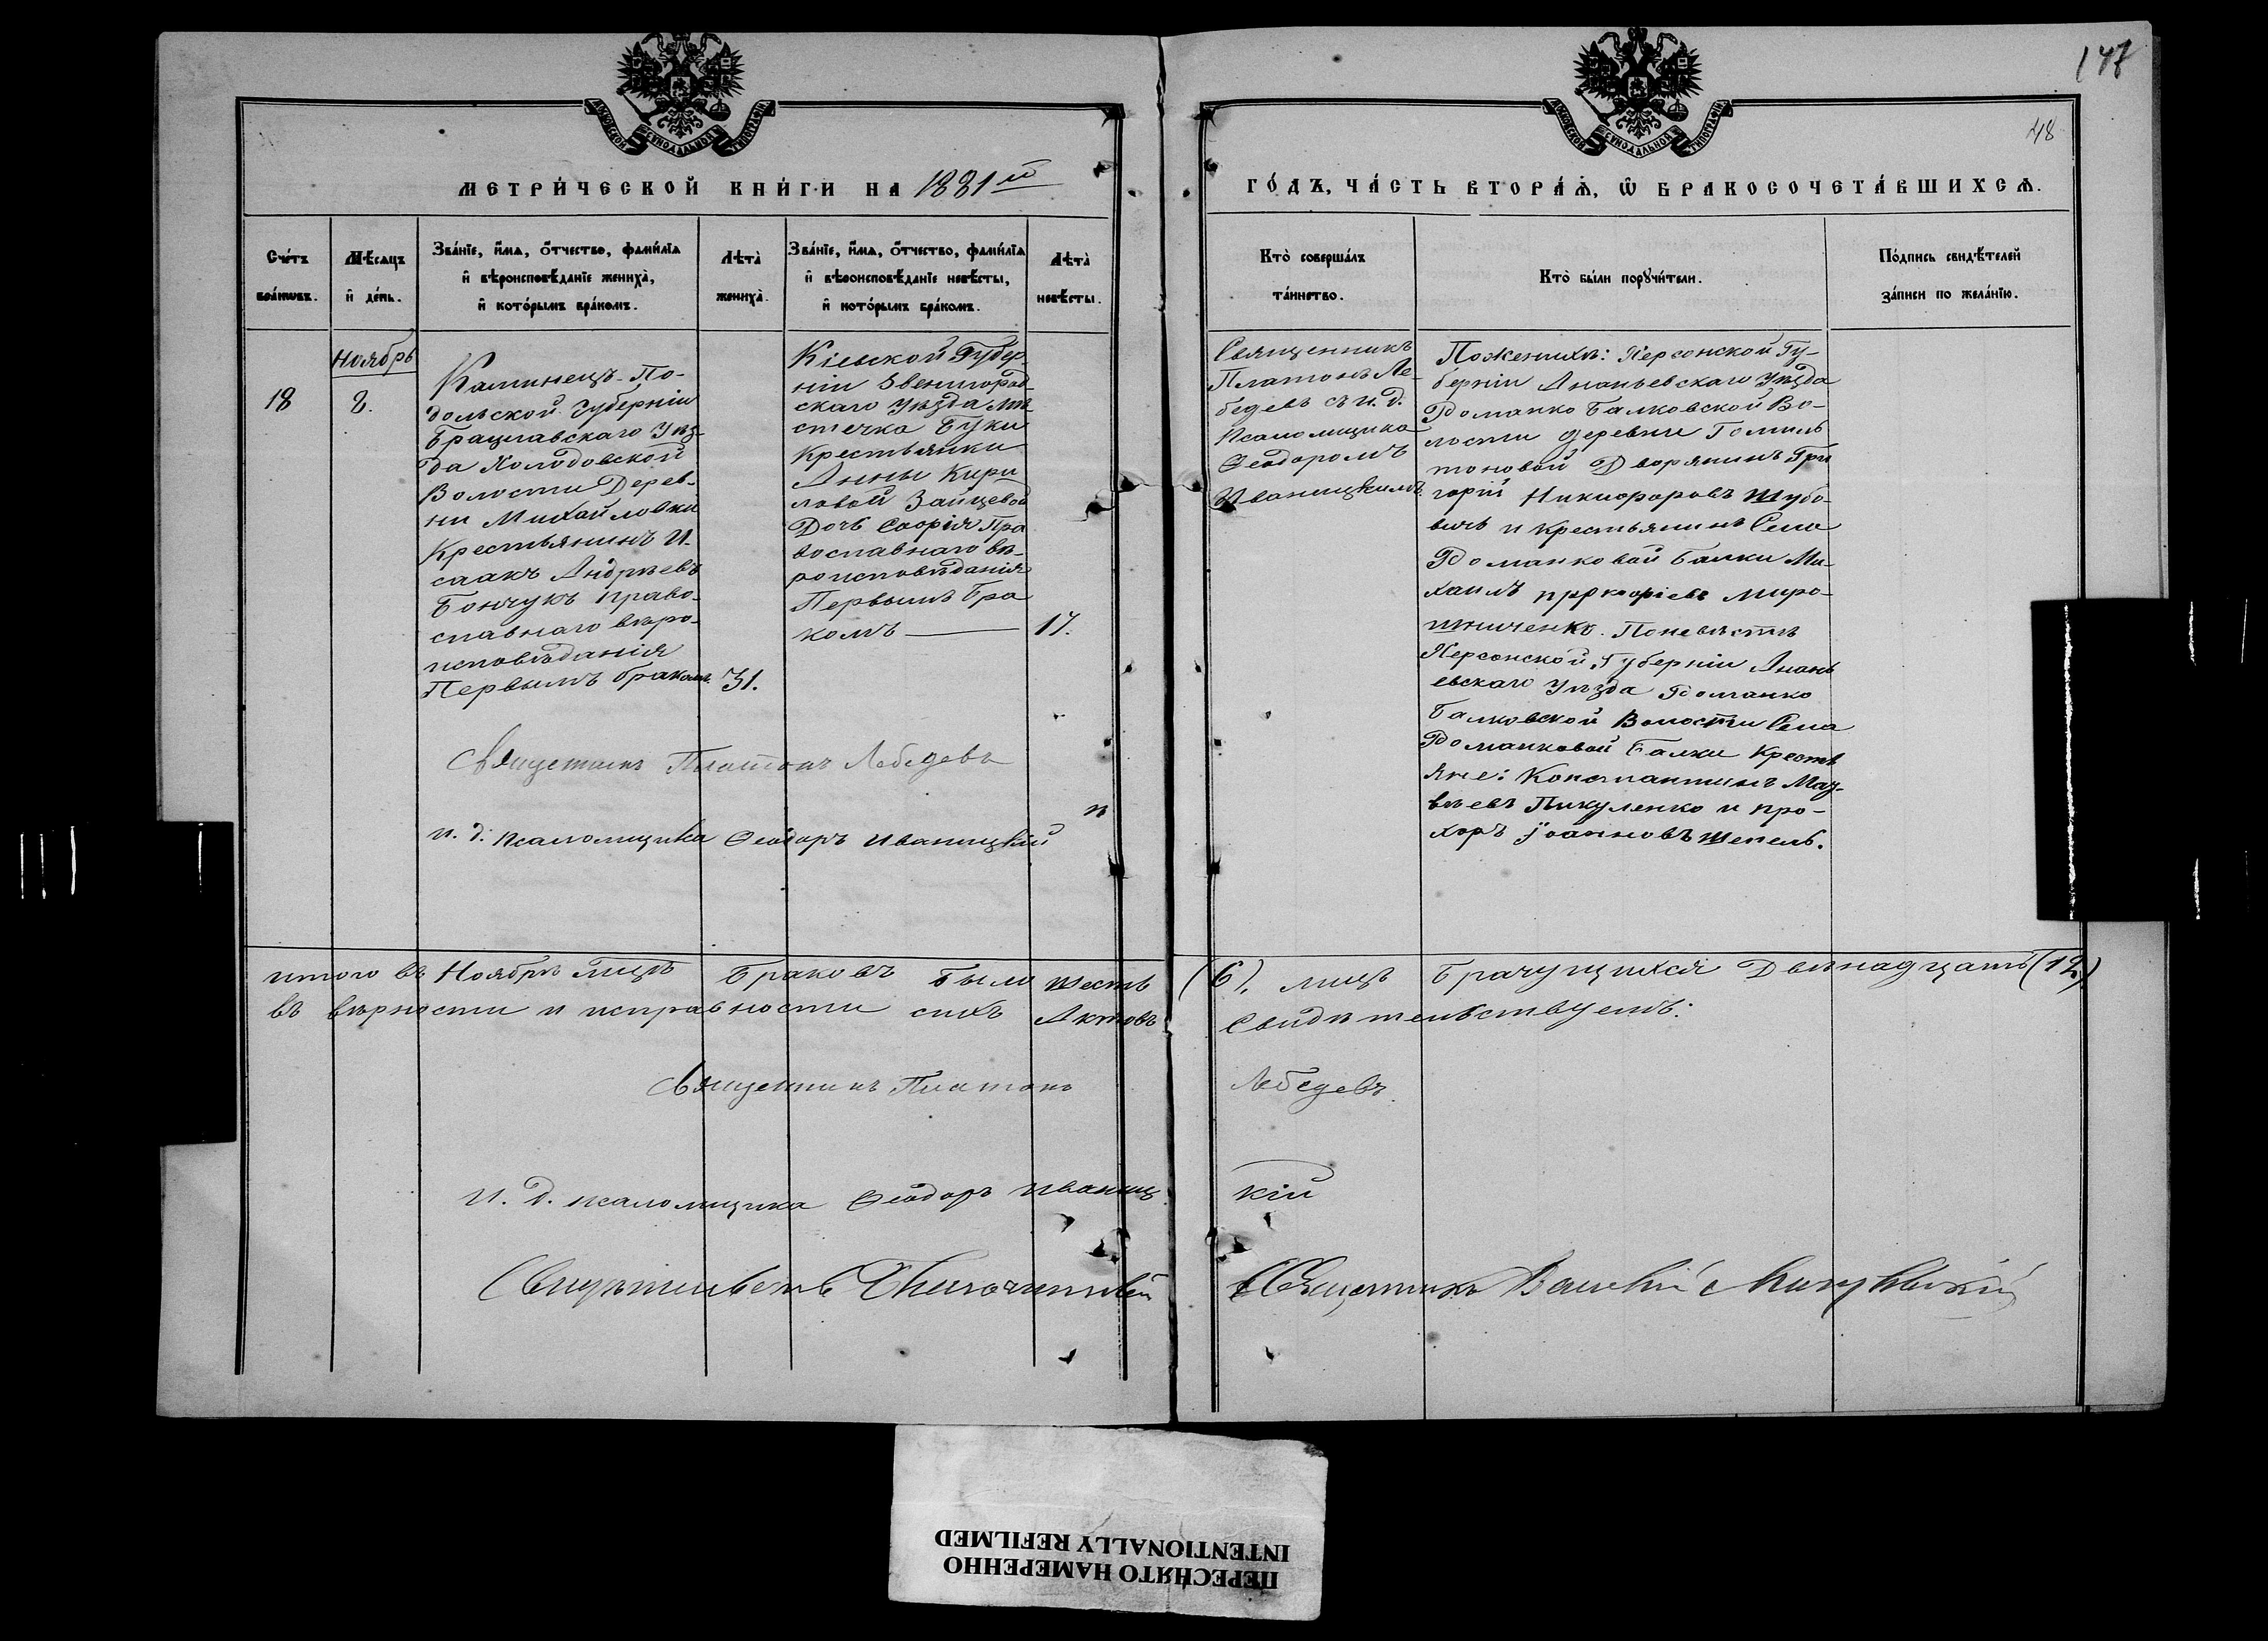 147
48
МОСКОВСКОЙ СѴНОДАЛЬНОЙ ТИПОГРАФІИ
МОСКОВСКОЙ СѴНОДАЛЬНОЙ ТИПОГРАФІИ
МЕТРИ́ЧЕСКОЙ КНИ́ГИ НА 1881 й
ГО́ДЪ, ЧА́СТЬ ВТОРА́Ѧ, Ѡ БРАКОСОЧЕТА́ВШИХСѦ.
Сче́тъ
бра́кѡвъ.
Мѣ́сѧцъ
и҆ де́нь.
Зва́нїе, и҆́мѧ, ѻ҆́тчество, фами́лїѧ
и҆ вѣроисповѣ́данїе жениха̀,
и҆ кото́рымъ бра́комъ.
Лѣта̀
жениха̀.
Зва́нїе, и҆́мѧ, ѻ҆́тчество, фами́лїѧ
и҆ вѣроисповѣ́данїе невѣ́сты,
и҆ кото́рымъ бра́комъ.
Лѣта̀
невѣ́сты.
Кто̀ соверша́лъ
та́инство.
Кто̀ бы́ли порꙋчи́тели.
По́дпись свидѣ́телей
за́писи по жела́нїю.
18
Ноябрь
8.
Каминецъ-По-
дольской Губерніи
Брацлавскаго Уѣз-
да Холодовской
Волости Дерев-
ни Михайловки
Крестьянинъ И-
саакъ Андрѣевъ
Бончукъ право-
славнаго вѣро-
исповѣданія
Первымъ бракомъ.
31.
Кіевской Губер
ніи Звенигород-
скаго Уѣзда мѣ-
стечка Буки
Крестьянки
Анны Кири
ловой Зайцевой
Дочь Софія Пра
вославнаго вѣ-
роисповѣданія
Первымъ Бра
комъ —
17.
Священникъ
Платонъ Ле-
бедевъ съ и. д.
Псаломщика
Ѳеодоромъ
Иваницкимъ.
Поженихѣ: Херсонской Гу-
берніи Ананьевскаго Уѣзда
Романко Балковской Во-
лости деревни Гомиль
тоновой Дворянинъ Гри
горій Никифоровъ Шубо-
вичъ и Крестьянинъ Села
Романковой Балки Ми-
хаилъ Миро-
шниченко. Поневѣстѣ
Херсонской Губерніи Анань
евскаго Уѣзда Романко
Балковской Волости Села
Романковой Балки Кресть
яне: Константинъ Мат-
вѣевъ Пикуленко и Про-
хоръ Іоанновъ Шепель.
Священникъ Платонъ Лебедевъ
и
и. д. псаломщика Ѳеодоръ Иваницкій
итого въ Ноябрѣ мцѣ Браковъ было шесть (6), лицъ Брачущихся Двѣнадцать (12)
въ вѣрности и исправности сихъ Актовъ Свидѣтельствуемъ:
Священникъ Платонъ Лебедевъ.
И. д. псаломщика Ѳеодоръ Иваницкій
Священникъ
ПЕРЕСНЯТО НАМЕРЕННО
INTENTIONALLY REFILMED